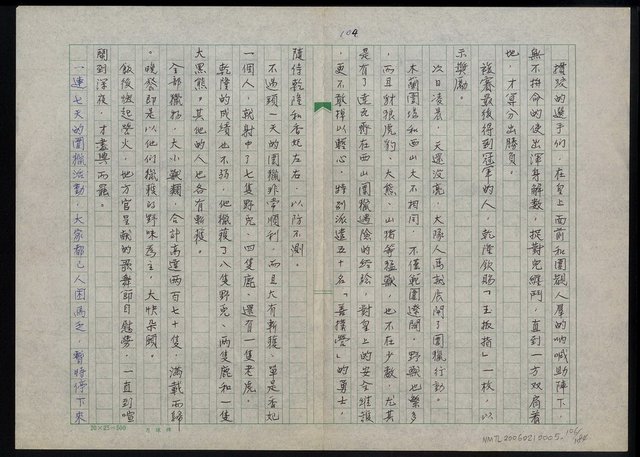 104
摜跤的選手們，在皇上面前和圍觀人羣的吶喊助陣下，
無不拚命的使出渾身解數，捉對兒纏鬥，直到一方双肩着
地，才算分出勝負。
該賽最後得到冠軍的人，乾隆欽賜「玉扳指」一枚，以
示獎勵。
次日凌晨，天還沒亮，大隊人馬就展開了圍獵行動。
木蘭圍場和西山大不相同，不僅範圍遼闊，野獸也繁多
，而且豺狼虎豹、大熊、山豬等猛獸，也不在少數，尤其
是有了達瓦齊在西山圍獵遇險的經驗，對皇上的安全維護
，更不敢掉以輕心，特別派遣五十名「善撲營」的勇士，
隨侍乾隆和香妃左右，以防不測。
不過頭一天的圍獵非常順利，而且大有斬獲，單是香妃
一個人，就射中了七隻野兔、四隻鹿、還有一隻老虎。
乾隆的成績也不弱，他獵獲了八隻野兔、兩隻鹿和一隻
大黑熊。其他的人也各有斬獲。
全部獵物，大小獸類，合計高達兩百七十隻，滿載而歸
。晚餐即是以他們獵獲的野味為主，大快朵頤。
飯後燃起營火，地方官呈獻的歌舞節目慰勞，一直到喧
鬧到深夜，才盡興而罷。
一連七天的圍獵活動，大家都已人困馬乏，暫時停下來
20×25=500
NMTL20050210005-106/184